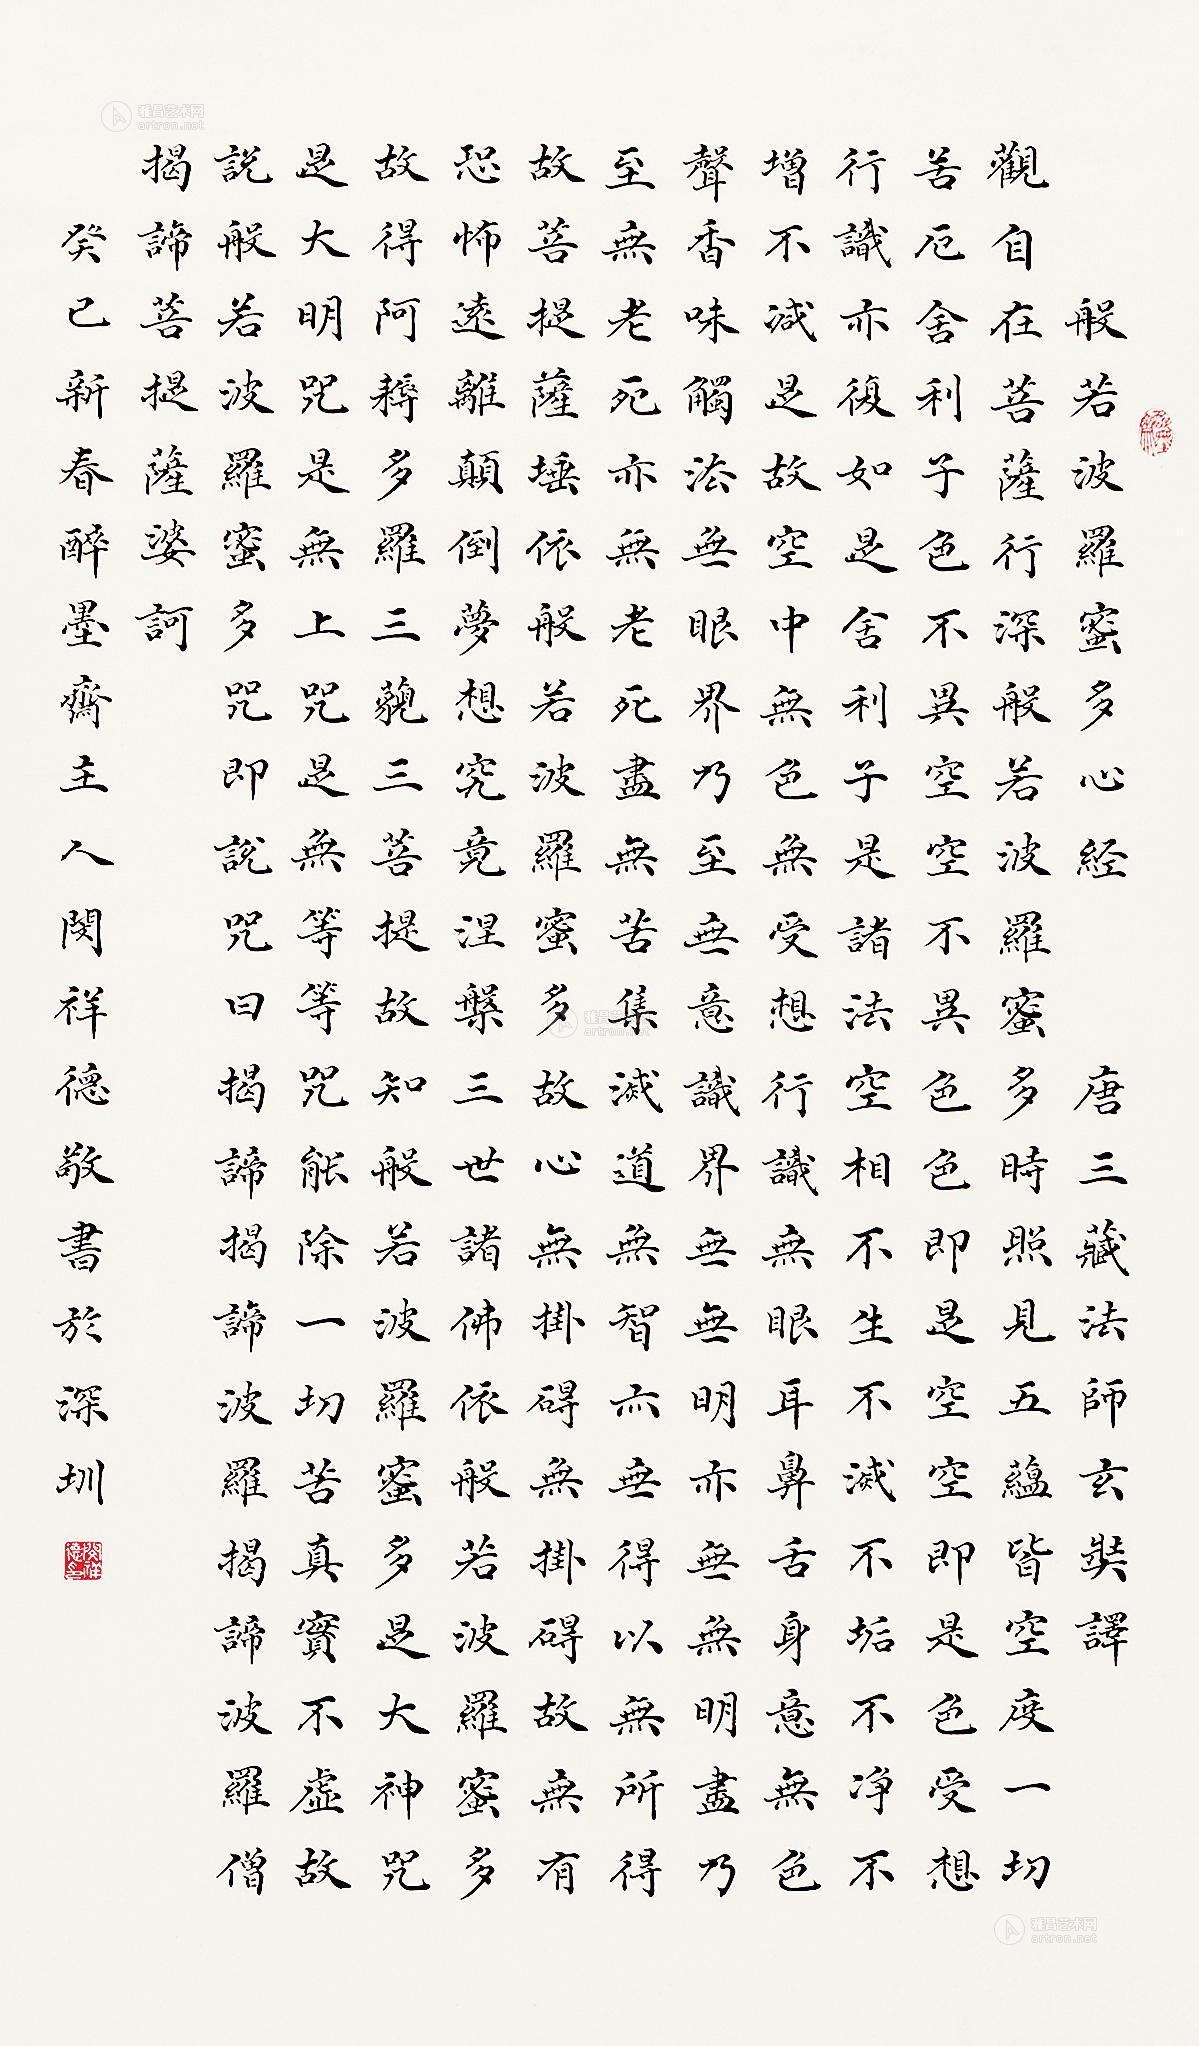 般若波羅蜜多心经 唐三藏法師玄奘譯
觀自在菩薩行深般若波羅蜜多時照見五蘊皆空度一切
苦厄舍利子色不異空空不異色色即是空空即是色受想
行識亦復如是舍利子是諸法空相不生不滅不垢不净不
增不減是故空中無色無受想行識無眼耳鼻舌身意無色
聲香味觸法無眼界乃至無意識界無無明亦無無明盡乃
至無老死亦無老死盡無苦集滅道無智亦無得以無所得
故菩提薩埵依般若波羅蜜多故心無掛碍無掛碍故無有
恐怖遠離顛倒夢想究竟涅槃三世諸佛依般若波羅蜜多
故得阿耨多羅三藐三菩提故知般若波羅蜜多是大神咒
是大明咒是無上咒是無等等咒能除一切苦真實不虛故
説般若波羅蜜多咒即說咒曰揭諦揭諦波羅揭諦波羅僧
揭諦菩提薩婆訶
癸巳新春醉墨齋主人闵祥德敬書於深圳
雅昌艺术网
artron.net
雅昌艺术网
artron.net
雅昌艺术网
artron.net